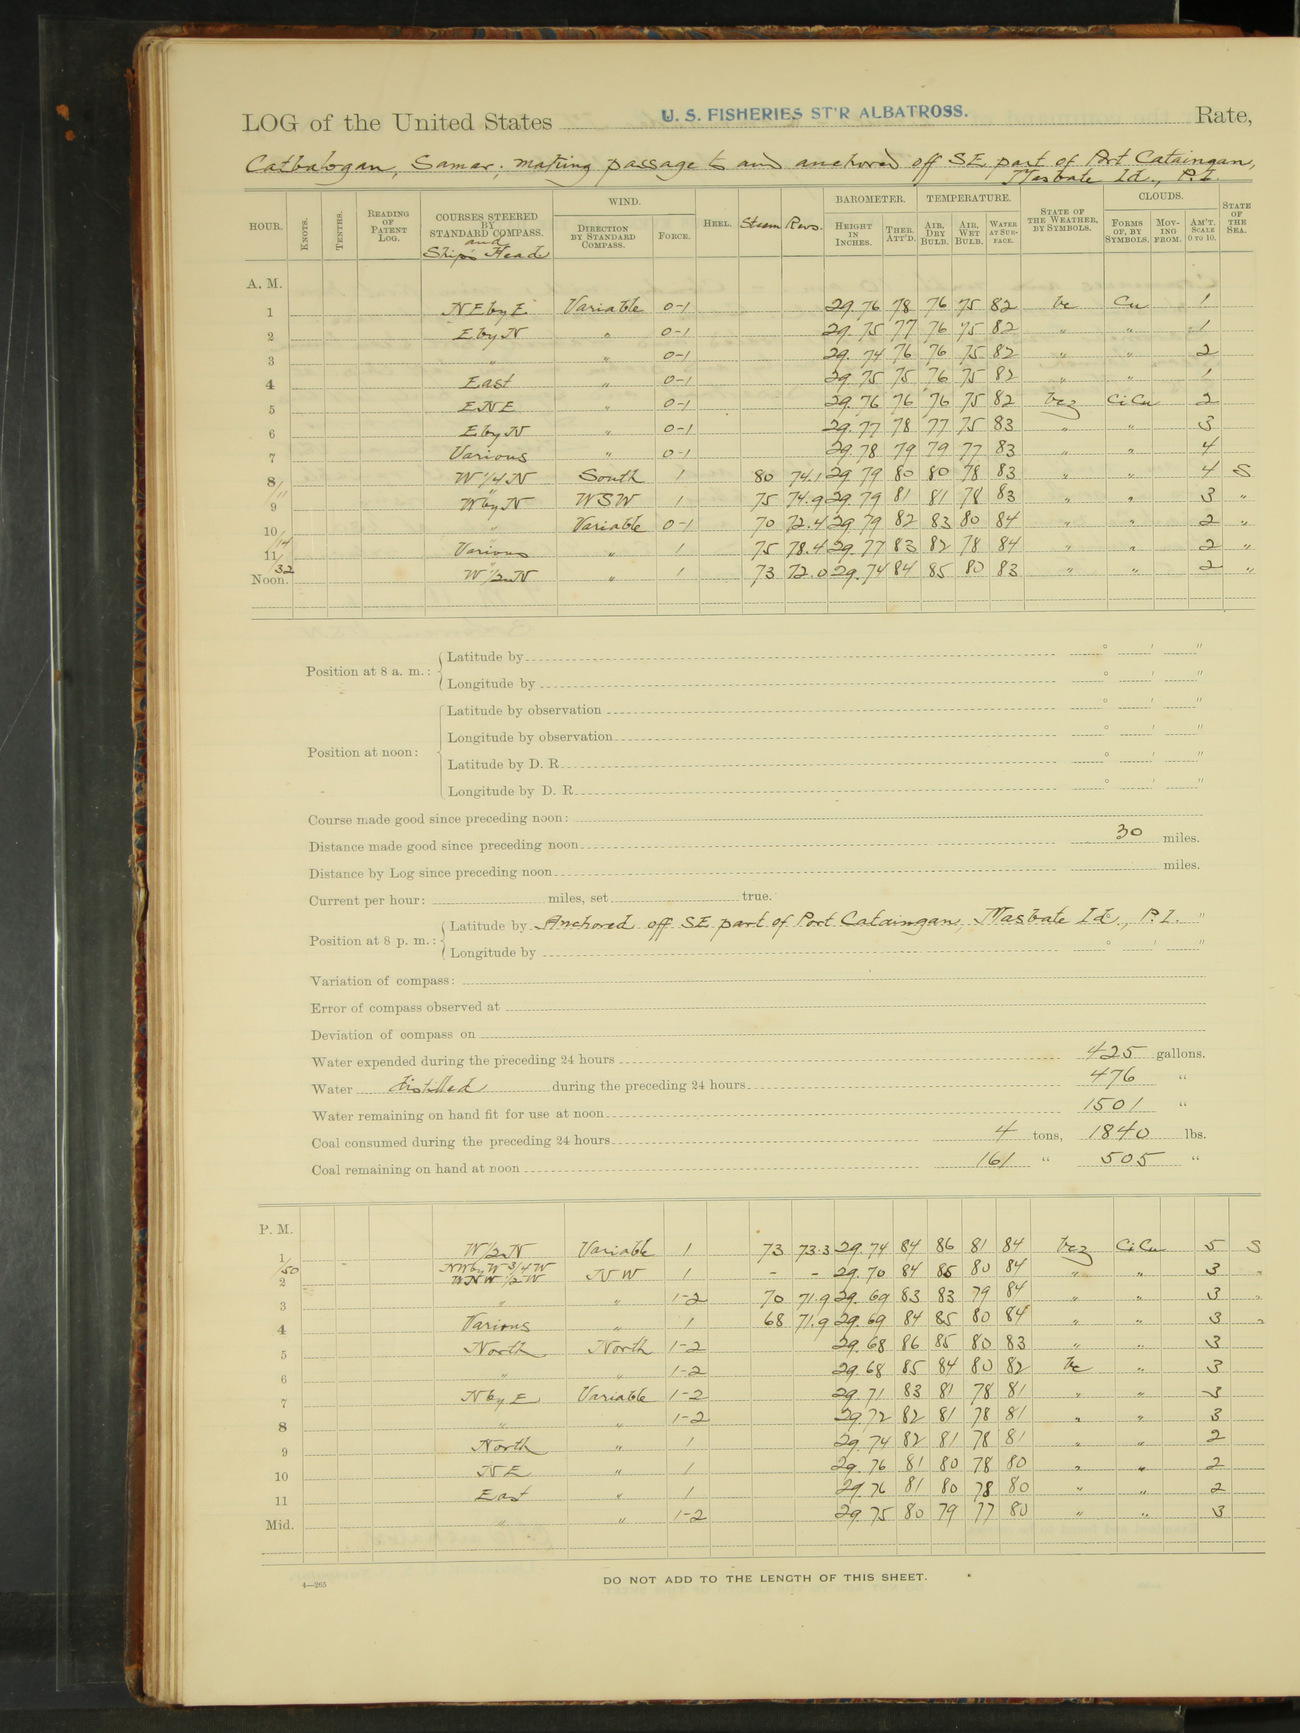 LOG of the United States U. S. FISHERIES ST'R ALBATROSS. Rate,
Catbalogan, Samar; making passage to and anchored off SE part of Port Cataingan,
Masbate Id., P.I.
HOUR. KNOTS. TENTHS. READING OF PATENT LOG. COURSES STEERED BY STANDARD COMPASS. and Ship's Head WIND. DIRECTION BY STANDARD COMPASS. FORCE. HEEL. Steam Revs. BAROMETER. HEIGHT IN INCHES. THER. ATT'D. TEMPERATURE. AIR, DRY BULB. AIR, WET BULB. WATER AT SURFACE. STATE OF THE WEATHER, BY SYMBOLS. CLOUDS. FORMS OF, BY SYMBOLS. MOVING FROM. AM'T. SCALE 0 TO 10. STATE OF THE SEA.
A. M.
1 NE by E Variable 0-1 29.76 78 76 75 82 bc Cu 1
2 E by N " 0-1 29.75 77 76 75 82 " " 1
3 " " 0-1 29.74 76 76 75 82 " " 2
4 East " 0-1 29.75 75 76 75 82 " " 1
5 ENE " 0-1 29.76 76 76 75 82 bcz CiCu 2
6 E by N " 0-1 29.77 78 77 75 83 " " 3
7 Various " 0-1 29.78 79 79 77 83 " 4
8 W 1/4 N South 1 80 74.1 29.79 80 80 78 83 " " 4 S
/11
9 W by N WSW 1 75 74.9 29.79 81 81 78 83 " " 3 "
10 " Variable 0-1 70 72.4 29.79 82 83 80 84 " " 2 "
/14
11 Various " 1 75 78.4 29.77 83 82 78 84 " " 2 "
/32
Noon. W 1/2 N " 1 73 72.0 29.74 84 85 80 83 " " 2 "
Position at 8 a. m.: Latitude by ° ' "
Longitude by ° ' "
Position at noon: Latitude by observation ° ' "
Longitude by observation ° ' "
Latitude by D. R. ° ' "
Longitude by D. R. ° ' "
Course made good since preceding noon:
Distance made good since preceding noon 30 miles.
Distance by Log since preceding noon miles.
Current per hour: miles, set true.
Position at 8 p. m.: Latitude by Anchored off SE part of Port Cataingan, Masbate Id., P.I. "
Longitude by ° ' "
Variation of compass:
Error of compass observed at
Deviation of compass on
Water expended during the preceding 24 hours 425 gallons.
Water distilled during the preceding 24 hours 476 "
Water remaining on hand fit for use at noon 1501 "
Coal consumed during the preceding 24 hours 4 tons, 1840 lbs.
Coal remaining on hand at noon 161 " 505 "
P. M.
1 W 1/2 N Variable 1 73 73.3 29.74 84 86 81 84 bcz CiCu 5 S
/50 NW by W 3/4 W
2 WNW 1/2 W NW 1 - - 29.70 84 85 80 84 " " 3 "
3 " " 1-2 70 71.9 29.69 83 83 79 84 " " 3 "
4 Various " 1 68 71.9 29.69 84 85 80 84 " " 3 "
5 North North 1-2 29.68 86 85 80 83 " " 3
6 " " 1-2 29.68 85 84 80 82 bc " 3
7 N by E Variable 1-2 29.71 83 81 78 81 " " 3
8 " " 1-2 29.72 82 81 78 81 " " 3
9 North " 1 29.74 82 81 78 81 " " 2
10 NE " 1 29.76 81 80 78 80 " " 2
11 East " 1 29.76 81 80 78 80 " " 2
Mid. " " 1-2 29.75 80 79 77 80 " " 3
4—265
DO NOT ADD TO THE LENGTH OF THIS SHEET.